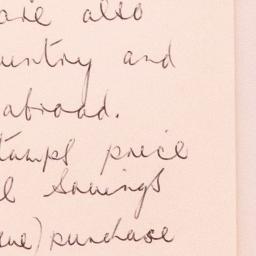 are also
untry and
abroad.
tamps price
l Savings
ue) purchase